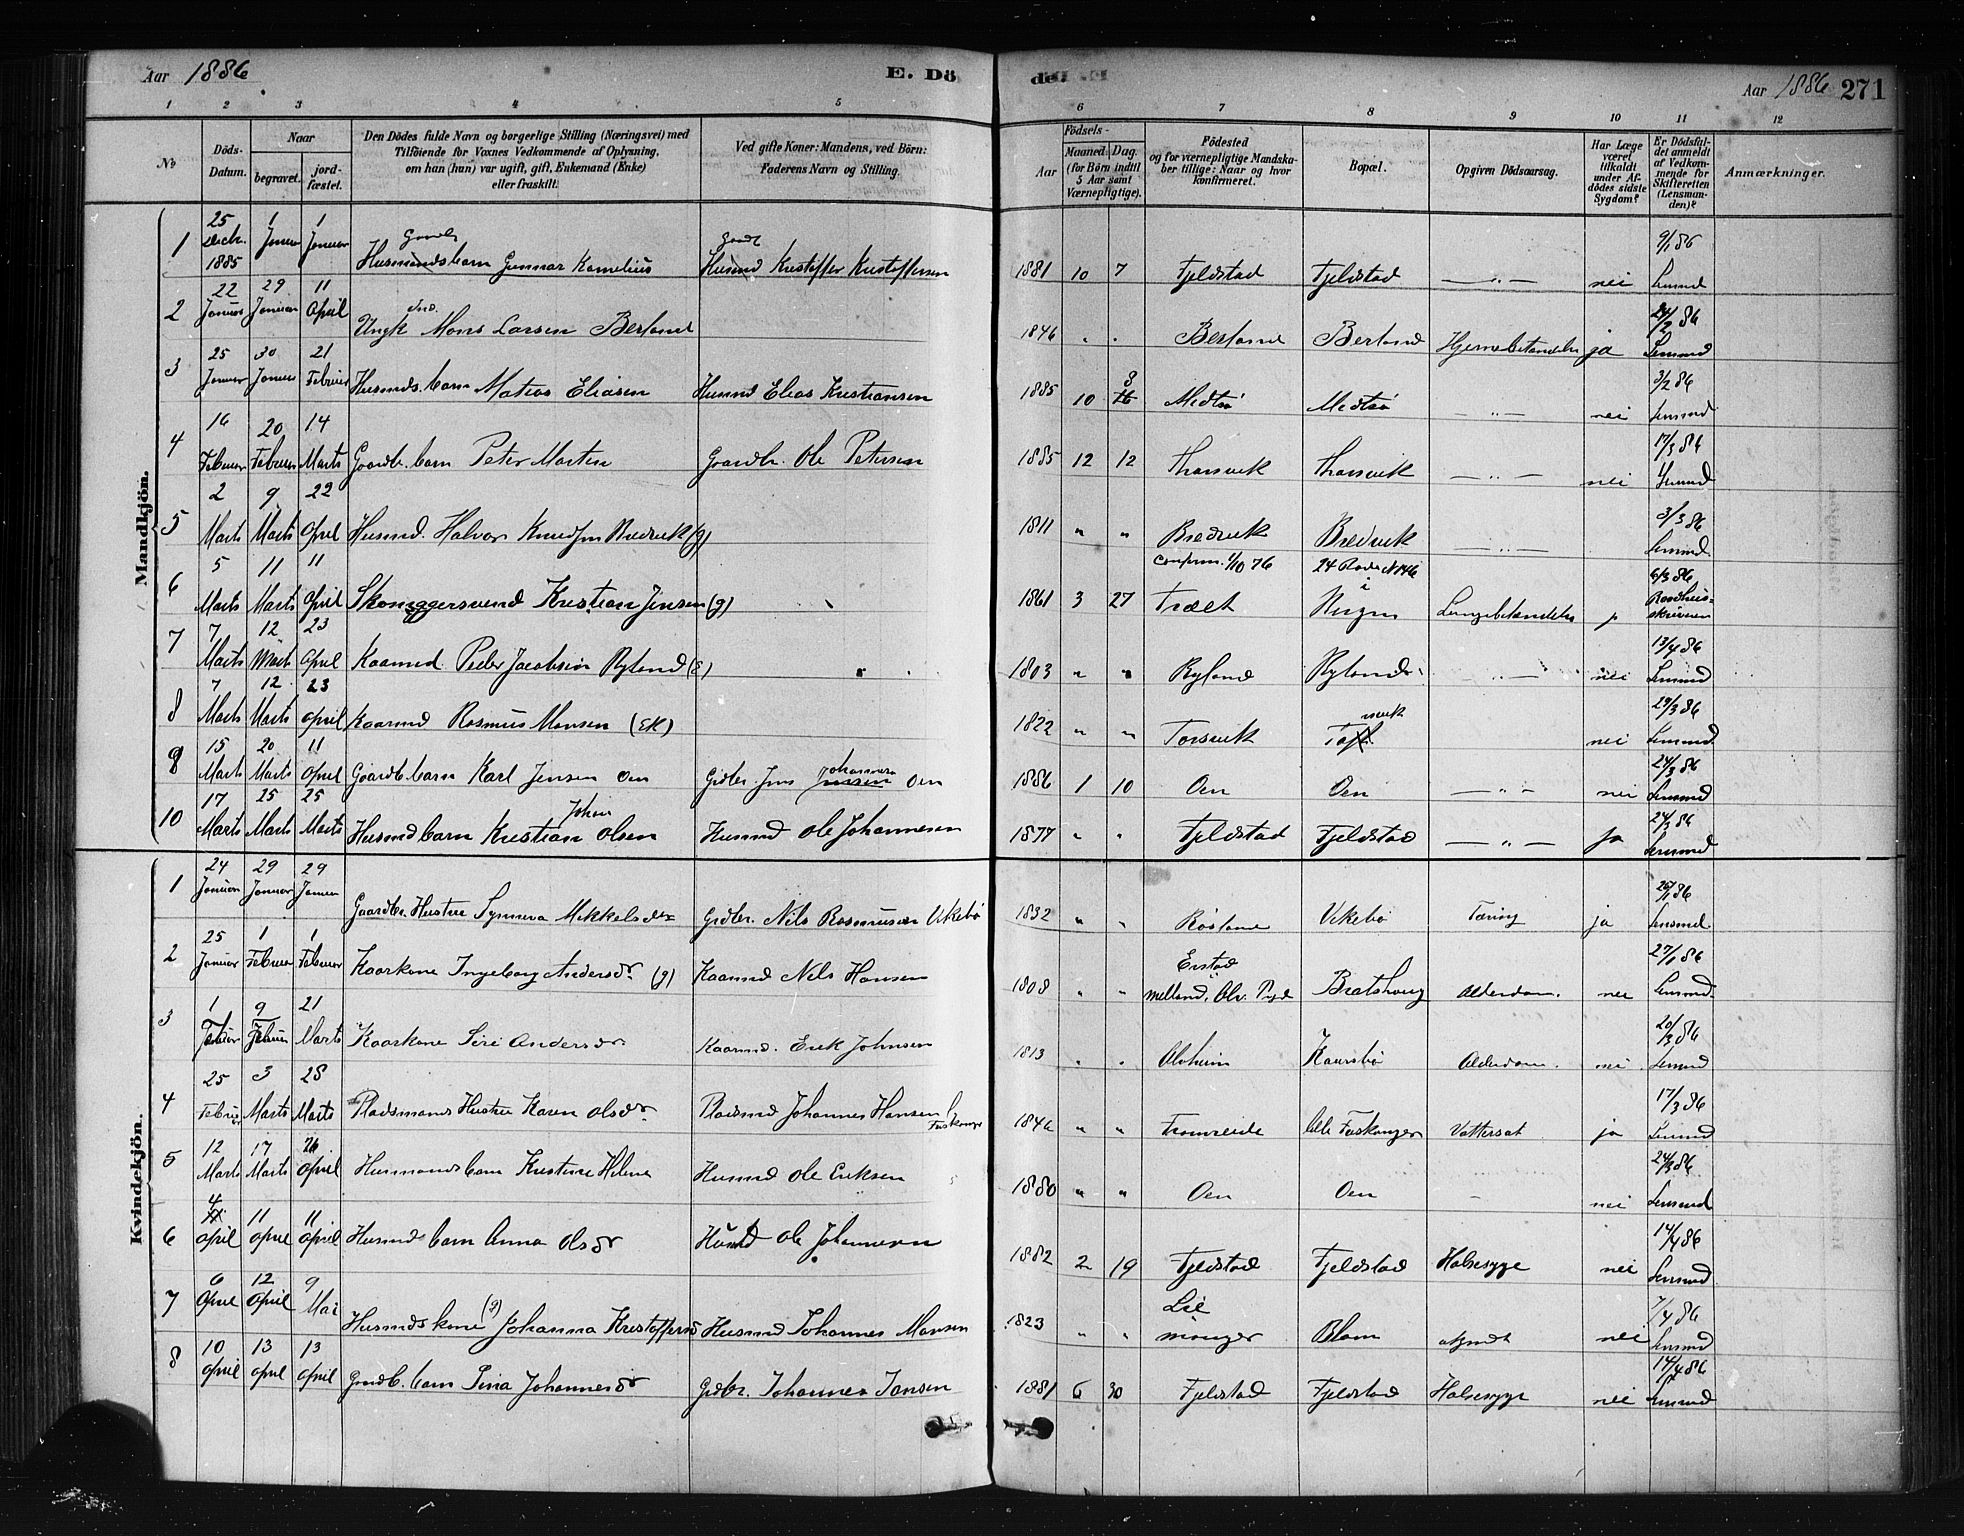 Aar 1886 E. Dö
de. Aar 1886 271
1 2 3 4 5
6 7 8 9 10 11 12
No
Döds-
Datum.
Naar
begravet.
jord-
fæstet.
Den Dödes fulde Navn og borgerlige Stilling (Næringsvei) med
Tilföiende for Voxnes Vedkommende af Oplysning,
om han (hun) var ugift, gift, Enkemand (Enke)
eller fraskilt.
Ved gifte Koner: Mandens, ved Börn:
Faderens Navn og Stilling.
Födsels-
Aar
Maaned. Dag.
(for Börn indtil
5 Aar samt
Værnepligtige).
Födested
og for værnepligtige Mandska-
ber tillige: Naar og hvor
konfirmeret.
Bopæl.
Opgiven Dödsaarsag.
Har Læge
været
tilkaldt
under Af-
dödes sidste
Sygdom?
Er Dödsfal-
det anmeldt
af Vedkom-
mende for
Skifteretten
(Lensman-
den)?
Anmærkninger.
Mandkjön.
1 25 Decbr. 1885 1 Januar 1 Januar Husmandsbarn Gunnar Kornelius Husmd Kristoffer Kristoffersen 1881 10 7 Fjeldstad Fjeldstad — " — nei 9/1 86 Lensmd
2 22 Januar 29 Januar 11 April Ungk Mons Larsen Berland 1846 " " Berland Berland Hjernebetændelse ja 24/2 86 Lensmd
3 25 Januar 30 Januar 21 Februar Husmds. barn Matias Eliasen Husmd Elias Kristiansen 1885 10 3 Medtsø Medtsø — " — nei 3/2 86 Lensmd
4 16 Februar 20 Februar 14 Marts Gaardbr. barn Peter Martin Gaardbr. Ole Petersen 1885 12 12 Thorsvik Thorsvik — " — nei 17/3 86 Lensmd
5 2 Marts 9 Marts 22 April Husmd. Halvor Knudsen Bredvik (g) 1811 " " Bredvik Bredvik — " — 3/3 86 Lensmd.
6 5 Marts 11 Marts 11 April Skomagersvend Kristian Jensen (g) 1861 3 27 confirm. 1/10 76 Træet 24 Rode N 146 i Bergen Lungebetændelse j 6/3 86 Raadhus-skriveren
7 7 Marts 12 Marts 23 April Kaarmd Peder Jacobsen Ryland (E) 1803 " " Ryland Ryland — " — nei 13/4 86 Lensmd
8 7 Marts 12 Marts 23 April Kaarmd Rasmus Monsen (EK) 1822 " " Torsvik nei 29/3 86 Lensmd.
9 15 Marts 20 Marts 11 April Gaardb. barn Karl Jensen Oen Grdbr. Jens Johannesen Oen 1886 1 10 Oen Oen — " — nei 24/3 86 Lensmd
10 17 Marts 25 Marts 25 Marts Husmd barn Kristian Johan Olsen Husmd Ole Johannesen 1877 " " Fjeldstad Fjeldstad — " — ja 24/3 86 Lensmd
Kvindekjön.
1 24 Januar 29 Januar 29 Januar Gaardbr. Hustru Synneva Mikkelsdr Grdbr. Nils Rasmussen Vikebø 1832 " " Røsland Vikebø Tæring ja 26/1 86 Lensmd.
2 25 Januar 1 Februar 1 Februar Kaarkone Ingeborg Andersdr (g) Kaarmd Nils Hansen 1808 " " Bratshoug Alderdom. nei 27/1 86 Lensmd.
3 1 Februar 9 Februar 21 Marts Kaarkone Siri Andersdr Kaarmd. Erik Johnsen 1813 " " Alvheim Kaursbø Alderdom. nei 20/3 86 Lensmd
4 25 Februar 3 Marts 28 Marts Pladsmands Hustru Karen Olsdr Pladsmd Johannes Hansen l. Fuskanger 1846 " " Tromreide lille Fuskanger Vattersot ja 17/3 86 Lensmd
5 12 Marts 17 Marts 26 April Husmandsbarn Kristine Helene Husmd Ole Eriksen 1880 " " Oen Oen — nei 24/3 86 Lensmd
6 4 April 11 April 11 April Husmds barn Anna Olsdr Husmd Ole Johannesen 1882 2 19 Fjeldstad Fjeldstad Halssyge nei 14/4 86 Lensmd
7 6 April 12 April 9 Mai Husmdskone (g) Johanna Kristoffersd Husmd Johannes Monsen 1823 " " Blom ukjendt nei 7/4 86 Lensmd
8 10 April 13 April 13 April Grdb. barn Sina Johannesdr Grdbr. Johannes Jansen 1881 6 30 Fjeldstad Fjeldstad Halssyge nei 14/4 86 Lensmd